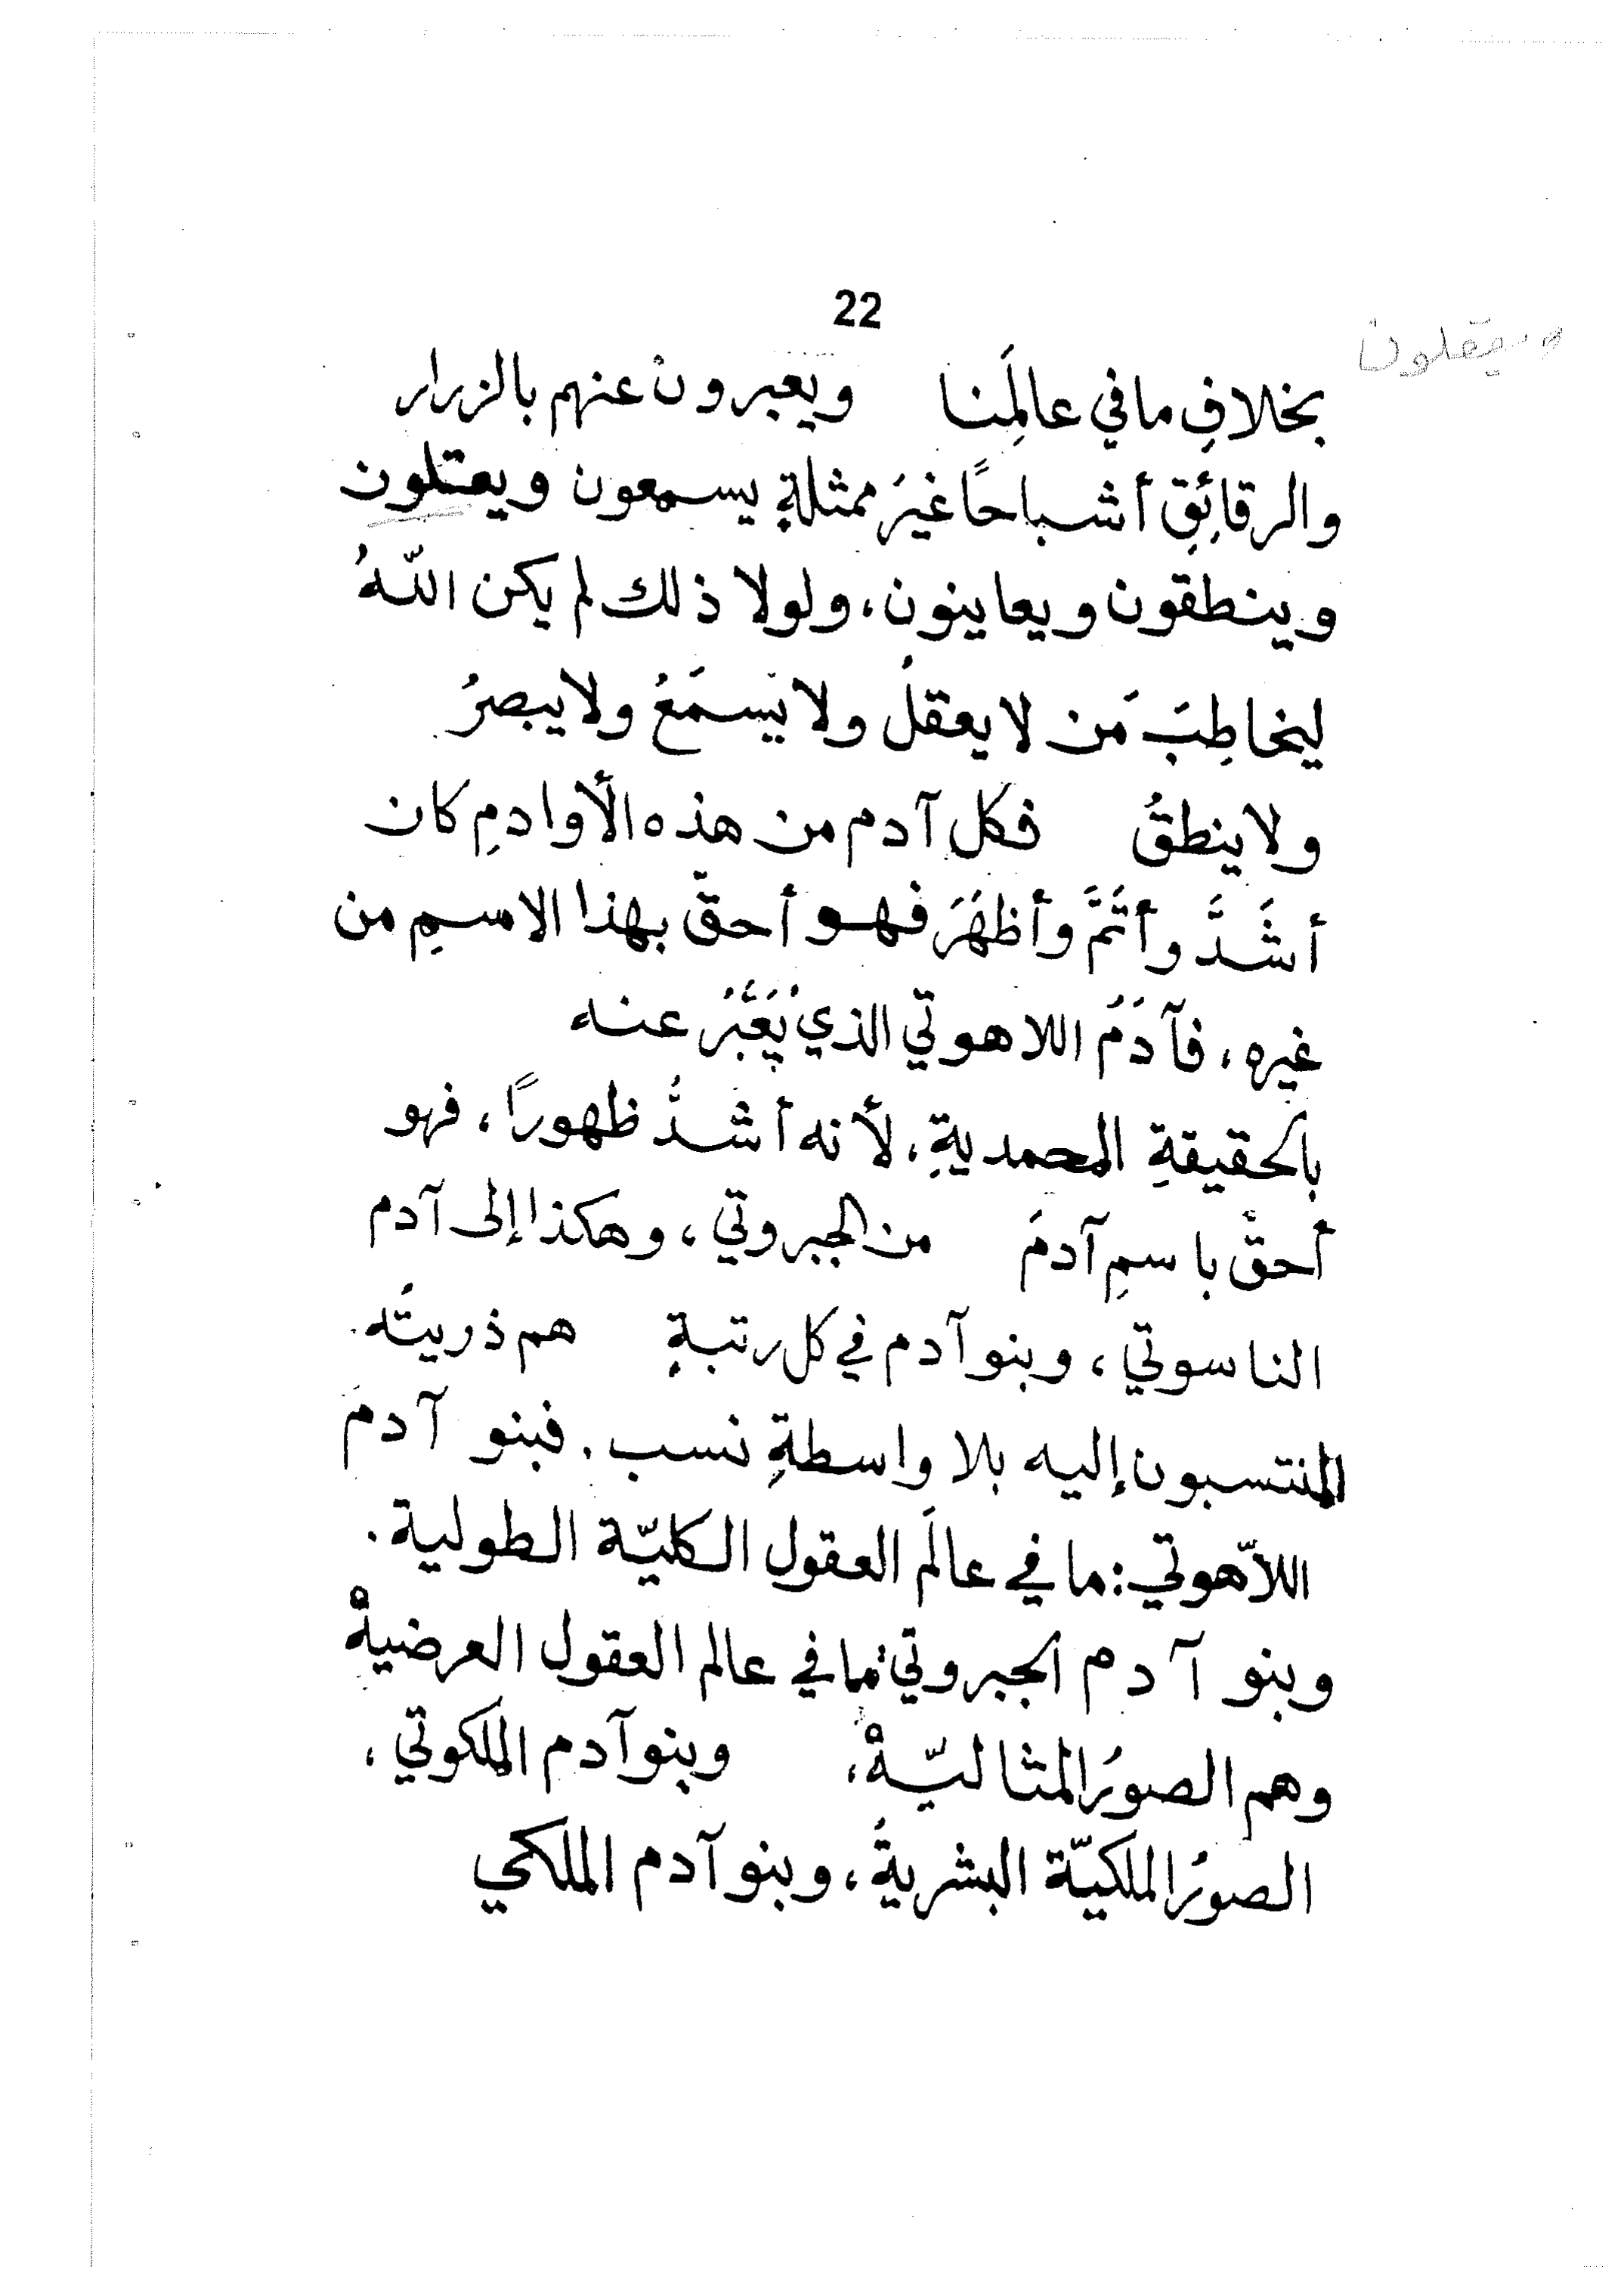 22
ويعقلون
بخلافِ ما في عالَمِنا ويعبرون عنهم بالزرار
والرقائِقِ أشباحًا غيرَ ممثلةٍ يسمعون ويعتلون
وينطقون ويعاينون، ولولا ذلك لم يكن اللّهُ
ليخاطِبَ مَن لا يعقلُ ولا يَسمَعُ ولا يبصرُ
ولا ينطقُ فكل آدم من هذه الأوادمِ كان
أشَدَّ وأتَمَّ وأظهَرَ فهو أحقّ بهذا الاسمِ من
غيره، فآدَمُ اللاهوتي الذي يُعَبَّرُ عنه
بالحقيقةِ المحمديةِ، لأنه أشدُّ ظهورًا، فهو
أحقّ باسمِ آدمَ من الجبروتي، وهكذا إلى آدم
الناسوتي، وبنو آدم في كل رتبةٍ هم ذريتُه.
المنتسبون إليه بلا واسطةِ نسب. فبنو آدمَ
اللاّهوتي: ما في عالَم العقول الكليّة الطولية.
وبنو آدم الجبروتي: ما في عالم العقول العرضيةْ
وهم الصورُ المثاليّةْ، وبنو آدم الملكوتي،
الصورُ الملكيّة البشريةُ، وبنو آدم الملكي